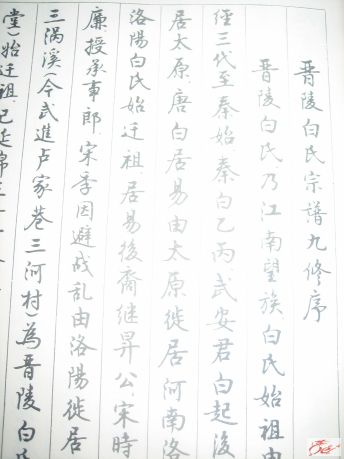 晋陵白氏宗譜九修序
晋陵白氏乃江南望族白氏始祖由
經三代至秦始秦白乙丙、武安君白起後
居太原、唐白居易由太原徙居河南洛
洛陽白氏始迁祖、居易後裔继昇公、宋時
廉、授承事郎、宋季因避战乱由洛陽徙居
三涡溪(今武進卢家巷三河村)為晋陵白氏
堂)始迁祖、已延綿三十